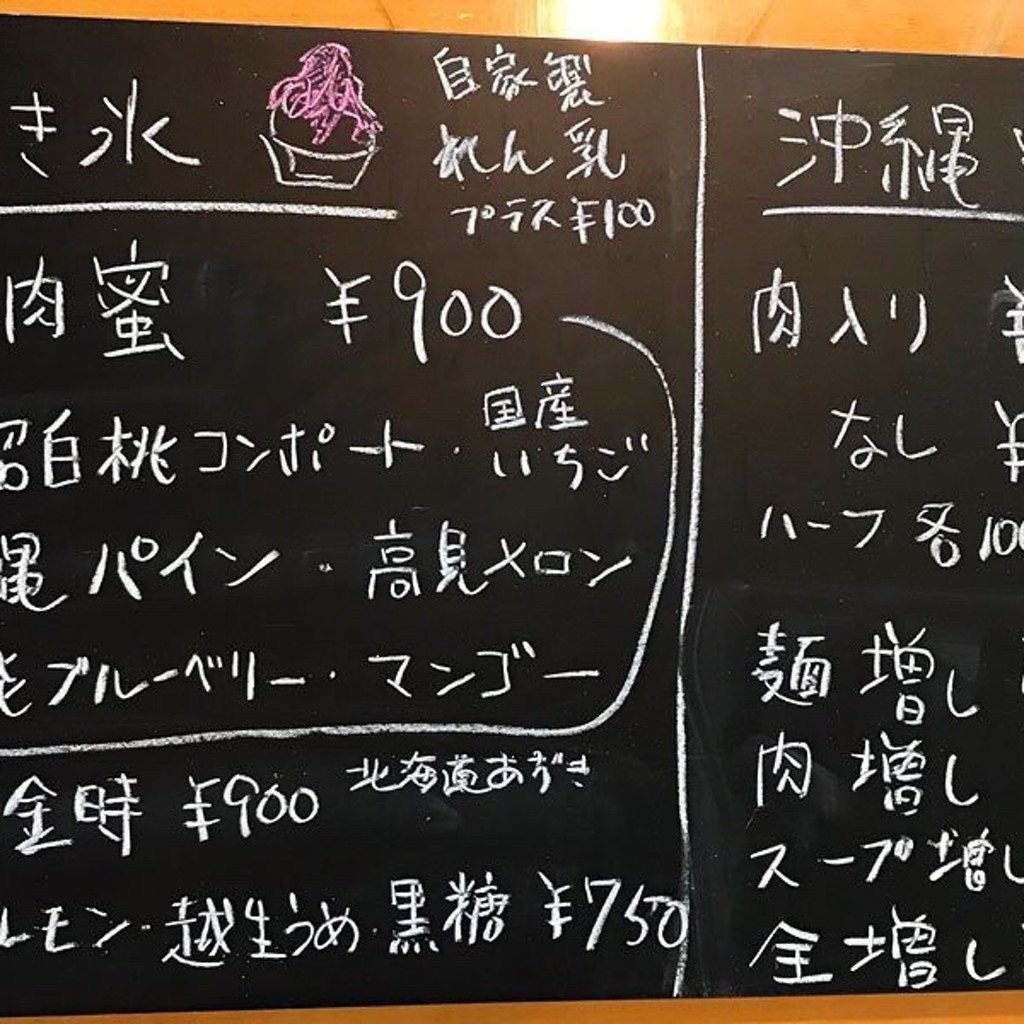 き氷
自家製
れん乳
プラス¥100
肉蜜 ¥900
白桃コンポート・国産いちご
縄パイン・高見メロン
ブルーベリー・マンゴー
金時 ¥900 北海道あずき
レモン・越生うめ・黒糖 ¥750
沖縄
肉入り ¥
なし ¥
ハーフ 各100
麺増し
肉増し
スープ増し
全増し